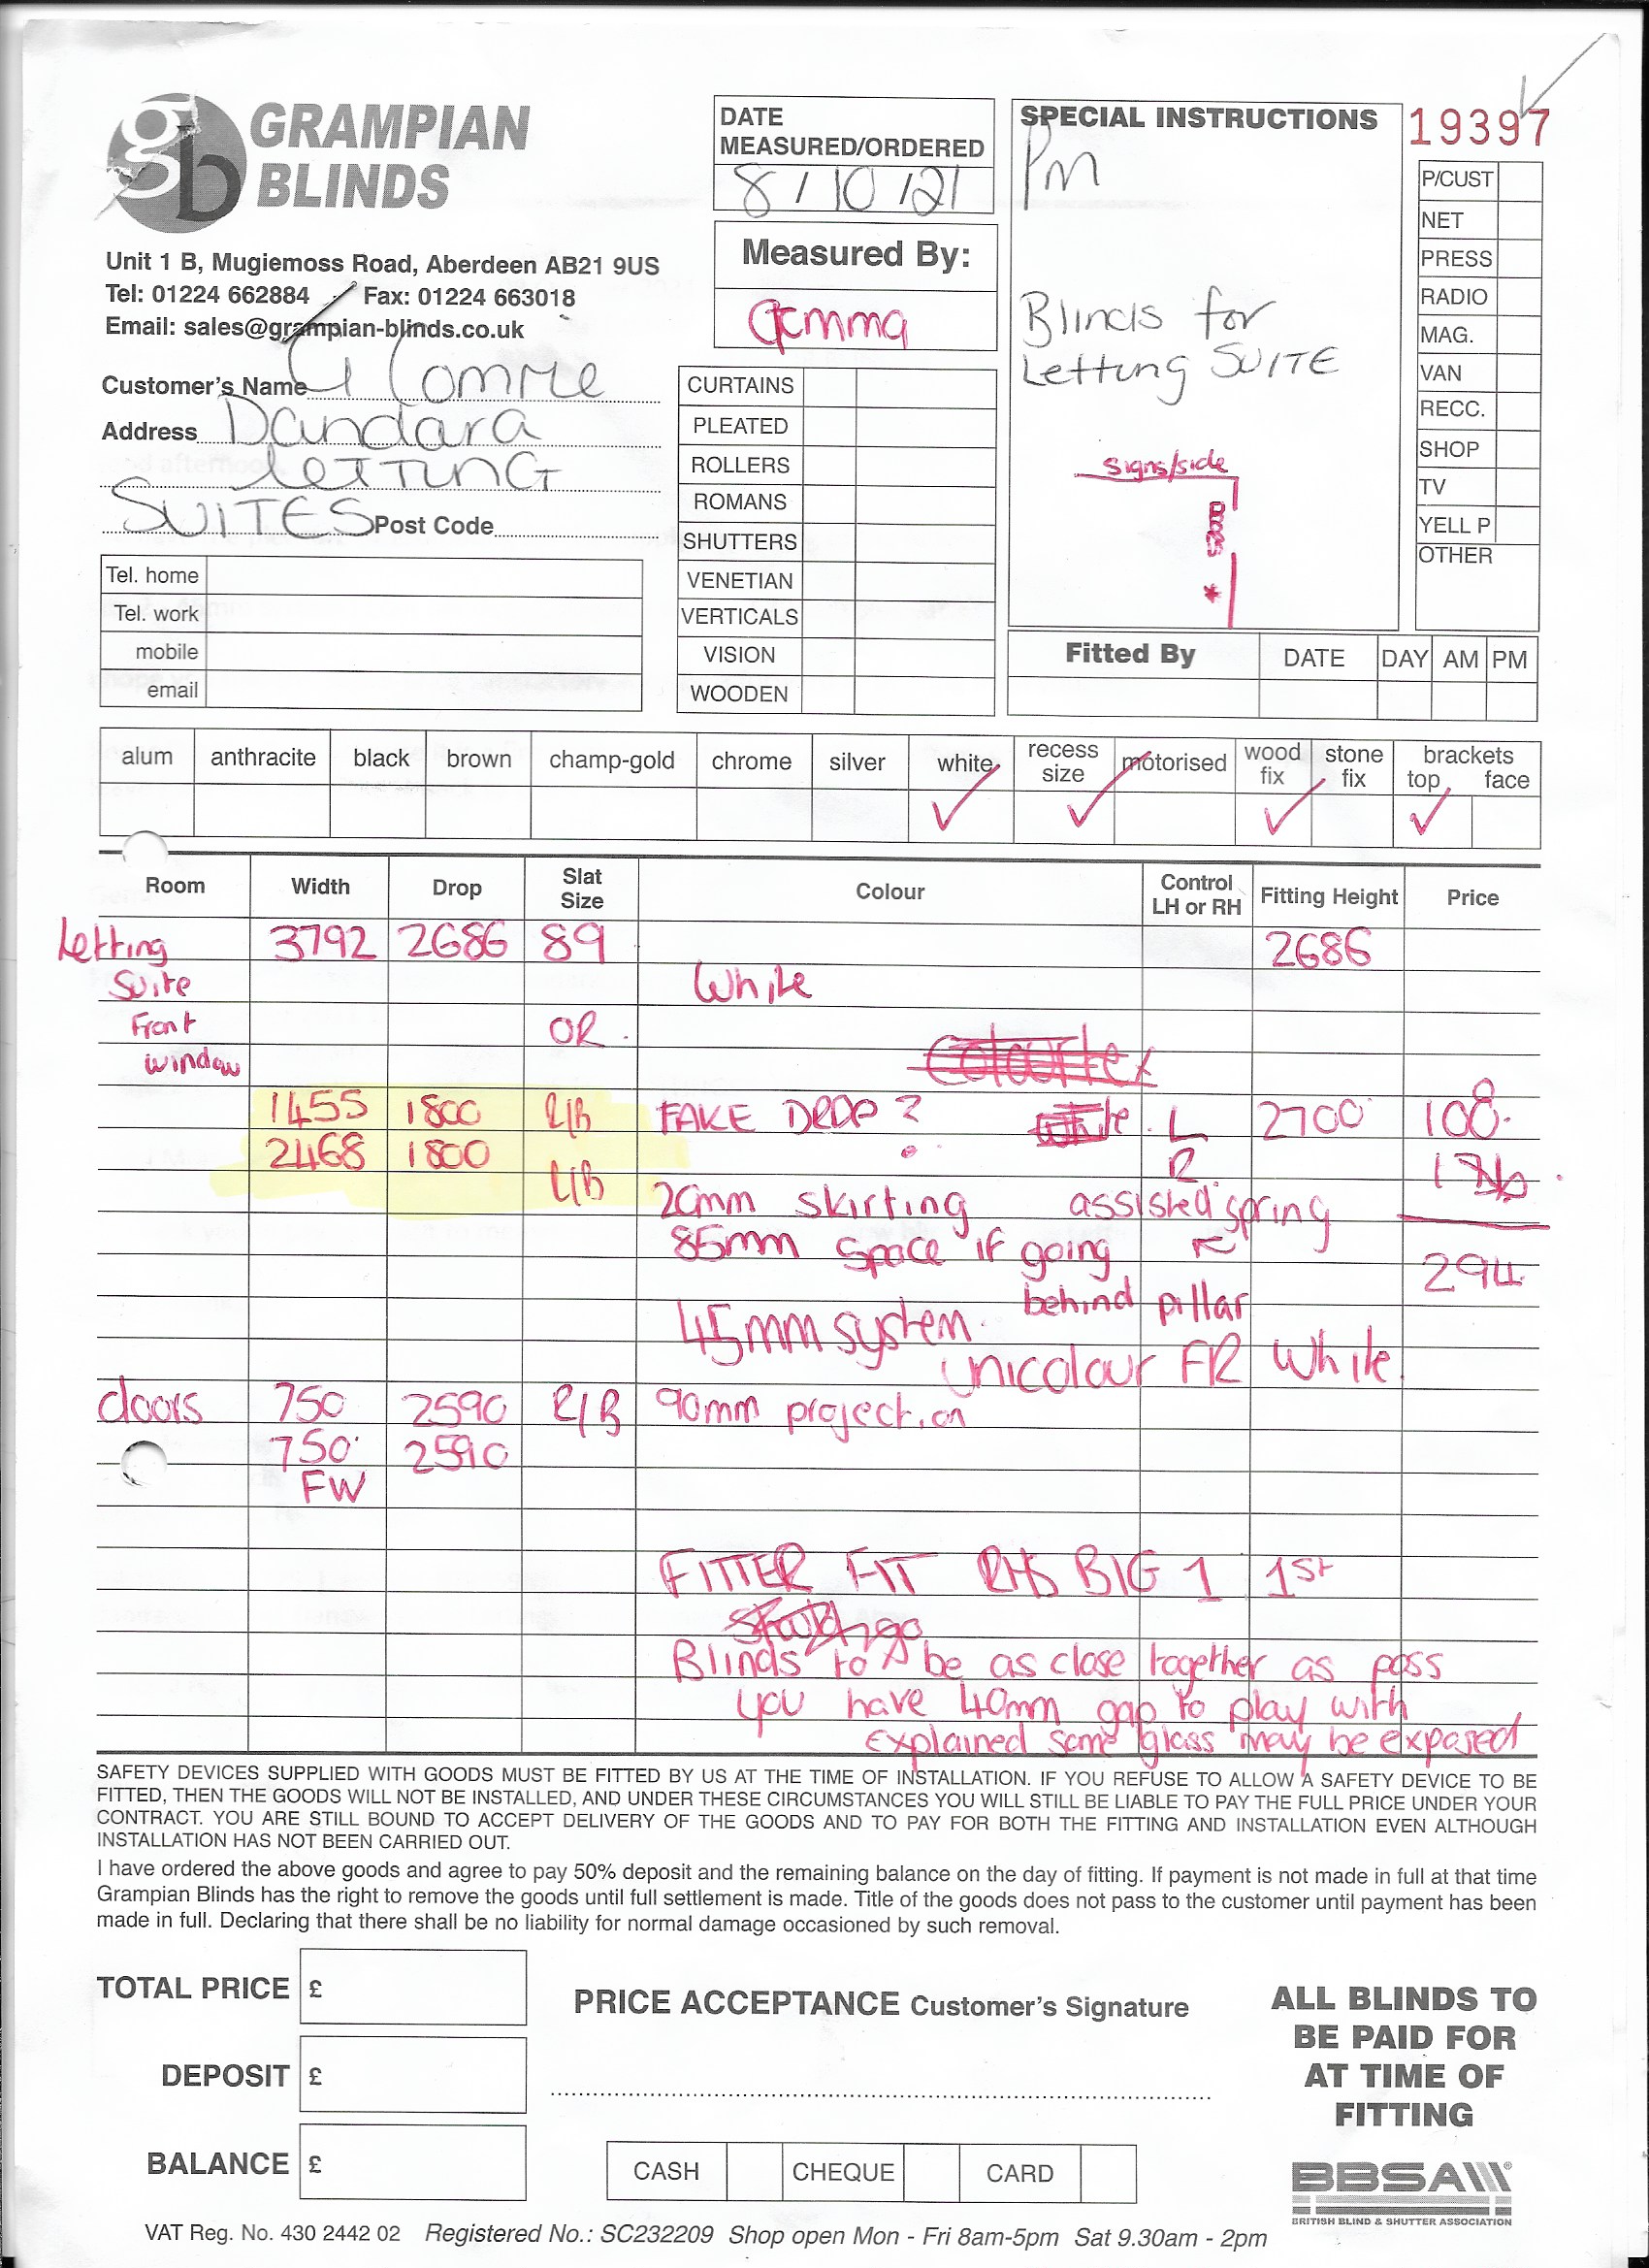 GRAMPIAN
BLINDS
gb
Unit 1 B, Mugiemoss Road, Aberdeen AB21 9US
Tel: 01224 662884 Fax: 01224 663018
Email: sales@grampian-blinds.co.uk
Customer's Name G Comrie
Address Dandara
LETTING
SUITES Post Code
Tel. home
Tel. work
mobile
email
DATE
MEASURED/ORDERED
8/10/21
Measured By:
Gemma
CURTAINS
PLEATED
ROLLERS
ROMANS
SHUTTERS
VENETIAN
VERTICALS
VISION
WOODEN
SPECIAL INSTRUCTIONS
PM
Blinds for
Letting SUITE
signs/side
doors
*
19397
P/CUST
NET
PRESS
RADIO
MAG.
VAN
RECC.
SHOP
TV
YELL P
OTHER
Fitted By DATE DAY AM PM
alum anthracite black brown champ-gold chrome silver white recess size motorised wood fix stone fix brackets top face
Room Width Drop Slat Size Colour Control LH or RH Fitting Height Price
Letting 3792 2686 89 2686
Suite White
Front OR
window
1455 1800 R/B FAKE DROP? L 2700 108.
2468 1800 R
R/B 20mm skirting assisted spring
85mm space if going 294
behind pillar
45mm system.
Unicolour FR White
doors 750 2590 R/B 90mm projection
750 2590
FW
FITTER FIT RHS BIG 1 1st
Blinds to go be as close together as poss
you have 40mm gap to play with
explained some glass may be exposed
SAFETY DEVICES SUPPLIED WITH GOODS MUST BE FITTED BY US AT THE TIME OF INSTALLATION. IF YOU REFUSE TO ALLOW A SAFETY DEVICE TO BE
FITTED, THEN THE GOODS WILL NOT BE INSTALLED, AND UNDER THESE CIRCUMSTANCES YOU WILL STILL BE LIABLE TO PAY THE FULL PRICE UNDER YOUR
CONTRACT. YOU ARE STILL BOUND TO ACCEPT DELIVERY OF THE GOODS AND TO PAY FOR BOTH THE FITTING AND INSTALLATION EVEN ALTHOUGH
INSTALLATION HAS NOT BEEN CARRIED OUT.
I have ordered the above goods and agree to pay 50% deposit and the remaining balance on the day of fitting. If payment is not made in full at that time
Grampian Blinds has the right to remove the goods until full settlement is made. Title of the goods does not pass to the customer until payment has been
made in full. Declaring that there shall be no liability for normal damage occasioned by such removal.
TOTAL PRICE £
DEPOSIT £
BALANCE £
PRICE ACCEPTANCE Customer's Signature
CASH CHEQUE CARD
ALL BLINDS TO
BE PAID FOR
AT TIME OF
FITTING
BBSA
BRITISH BLIND & SHUTTER ASSOCIATION
VAT Reg. No. 430 2442 02 Registered No.: SC232209 Shop open Mon - Fri 8am-5pm Sat 9.30am - 2pm